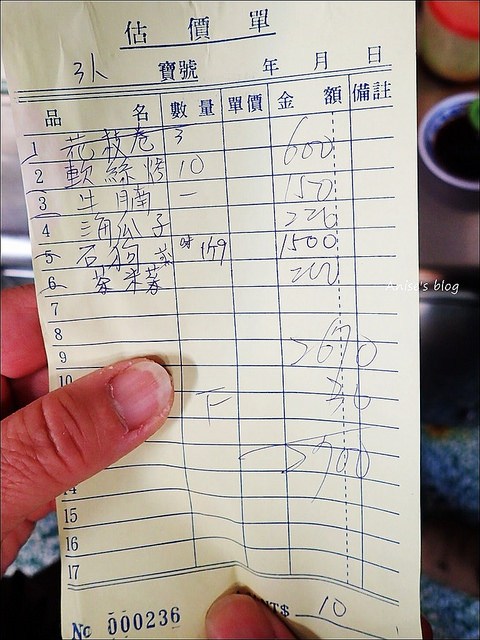 估價單
3人 寶號 年 月 日
品名 數量 單價 金額 備註
1 花枝卷 3 600
2 軟絲烤 10 150
3 牛腩 一 220
4 海瓜子
5 石狗 1500
6 菜米菜 200
7
8
9 2670
10 30
下
2700
14
15
16
17
No 000236 NT$ 10
Anise's blog